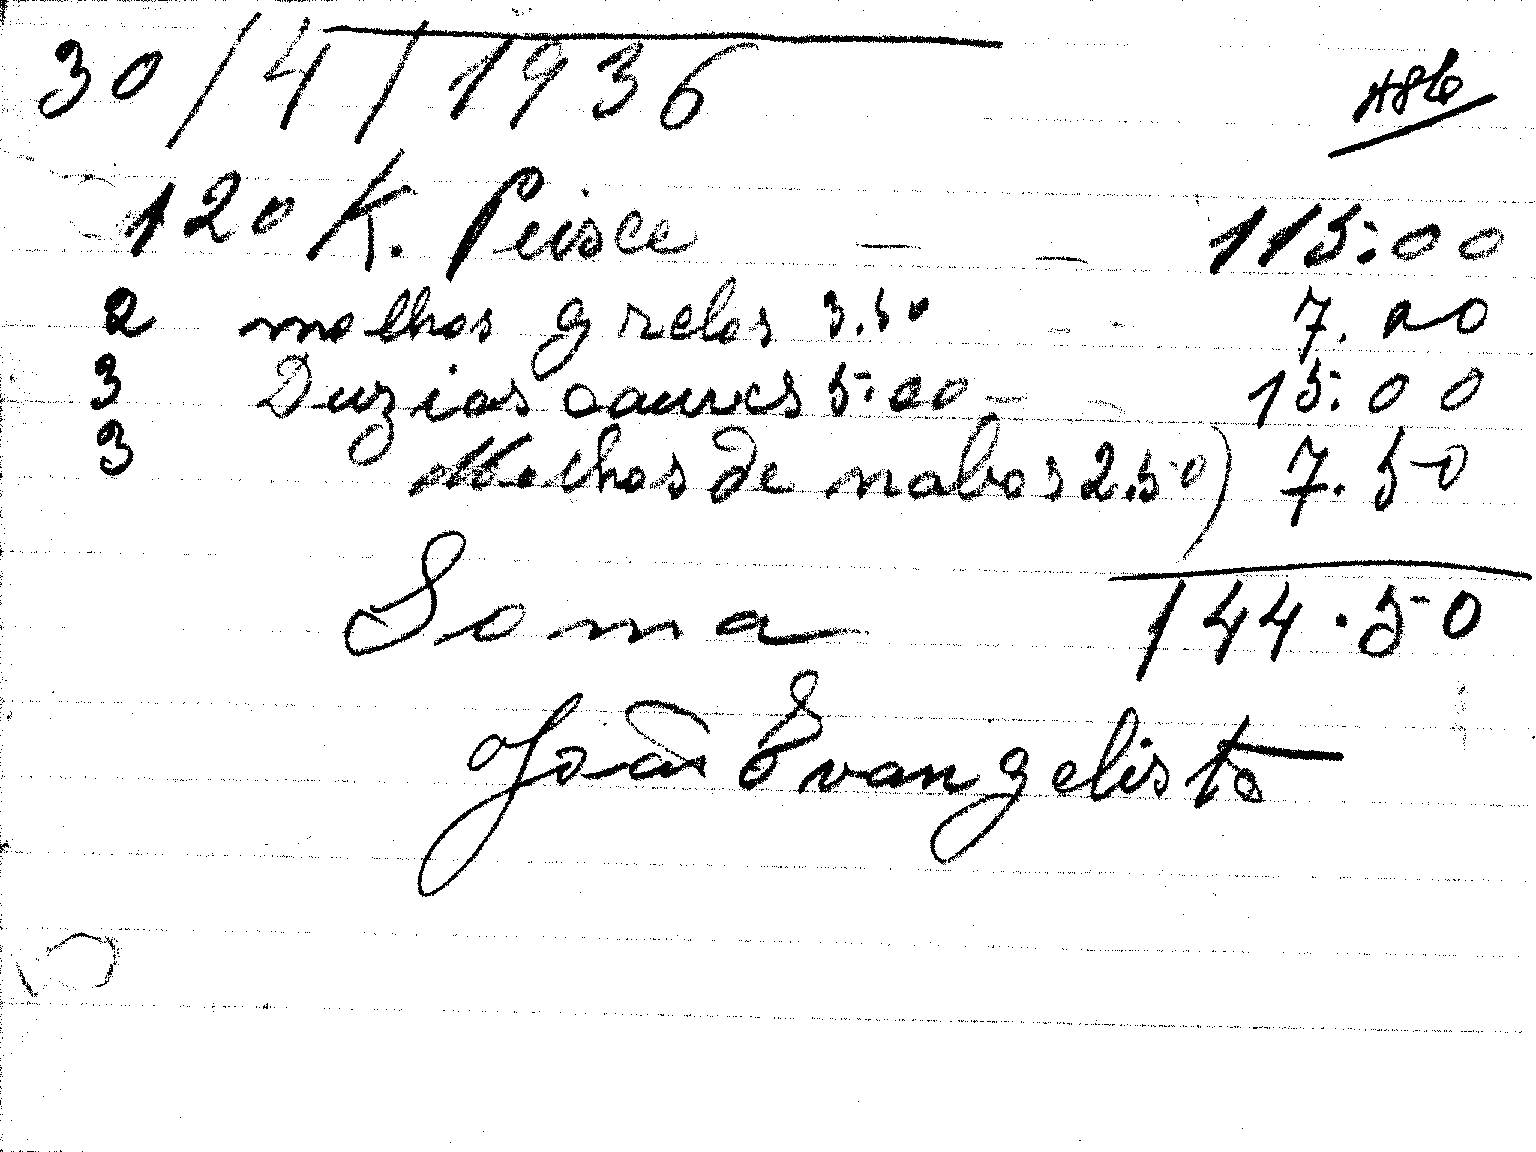 30/4/1936
120 K. Peisce — - 115:00
2 molhos grelos 3.50 - - 7.00
3 Duzias couves 5:00 - 15:00
3 Molhos de nabos 2.50) 7.50
Soma 144.50
João Evangelista